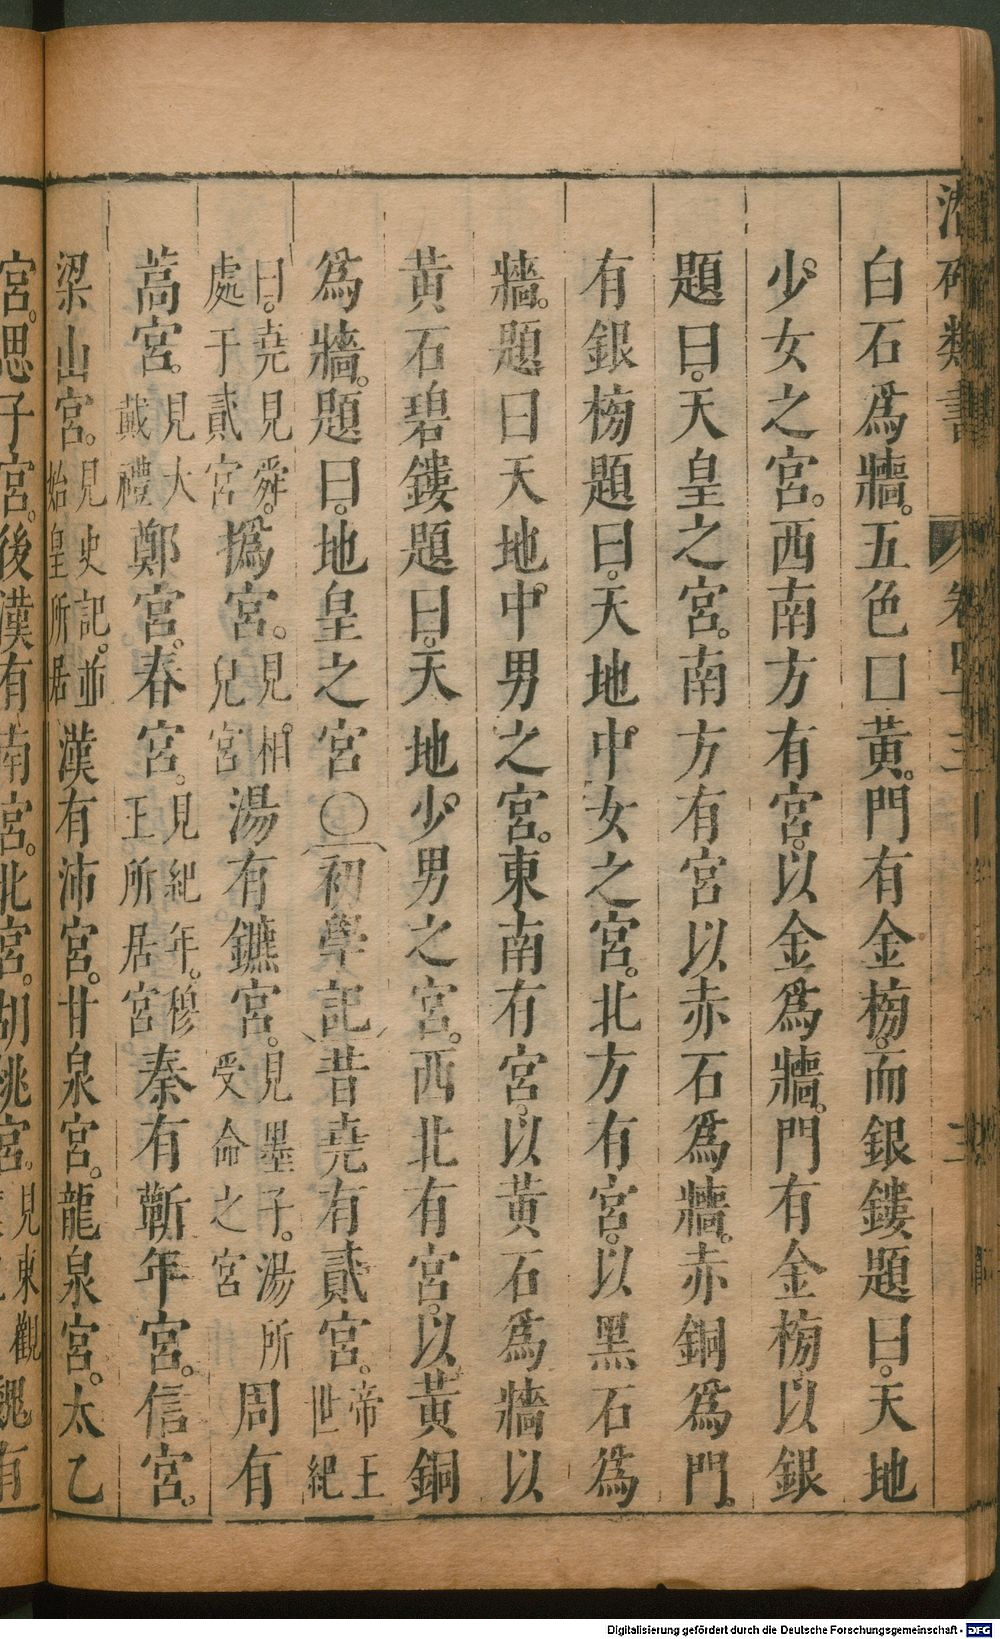 類書
白石為牆。五色囗黃。門有金榜。而銀鏤題曰。天地
少女之宮。西南方有宮。以金為牆。門有金榜。以銀
題曰。天皇之宮。南方有宮以赤石為牆。赤銅為門。
有銀榜題曰。天地中女之宮。北方有宮。以黑石為
牆。題曰天地中男之宮。東南有宮。以黃石為牆以
黃石碧鏤題曰。天地少男之宮。西北有宮。以黃銅
為牆。題曰。地皇之宮○初學記昔堯有貳宮。帝王世紀
曰。堯見舜。處于貳宮撝宮。見相。兒宮湯有鑣宮。見墨子。湯所受命之宮周有
蒿宮。見大戴禮鄭宮。春宮。見紀年。穆王所居宮秦有蘄年宮。信宮。
梁山宮。見史記。並始皇所居漢有沛宮。甘泉宮。龍泉宮。太乙
宮。思子宮。後漢有南宮。北宮。胡桃宮。見東觀魏有
Digitalisierung gefördert durch die Deutsche Forschungsgemeinschaft - DFG